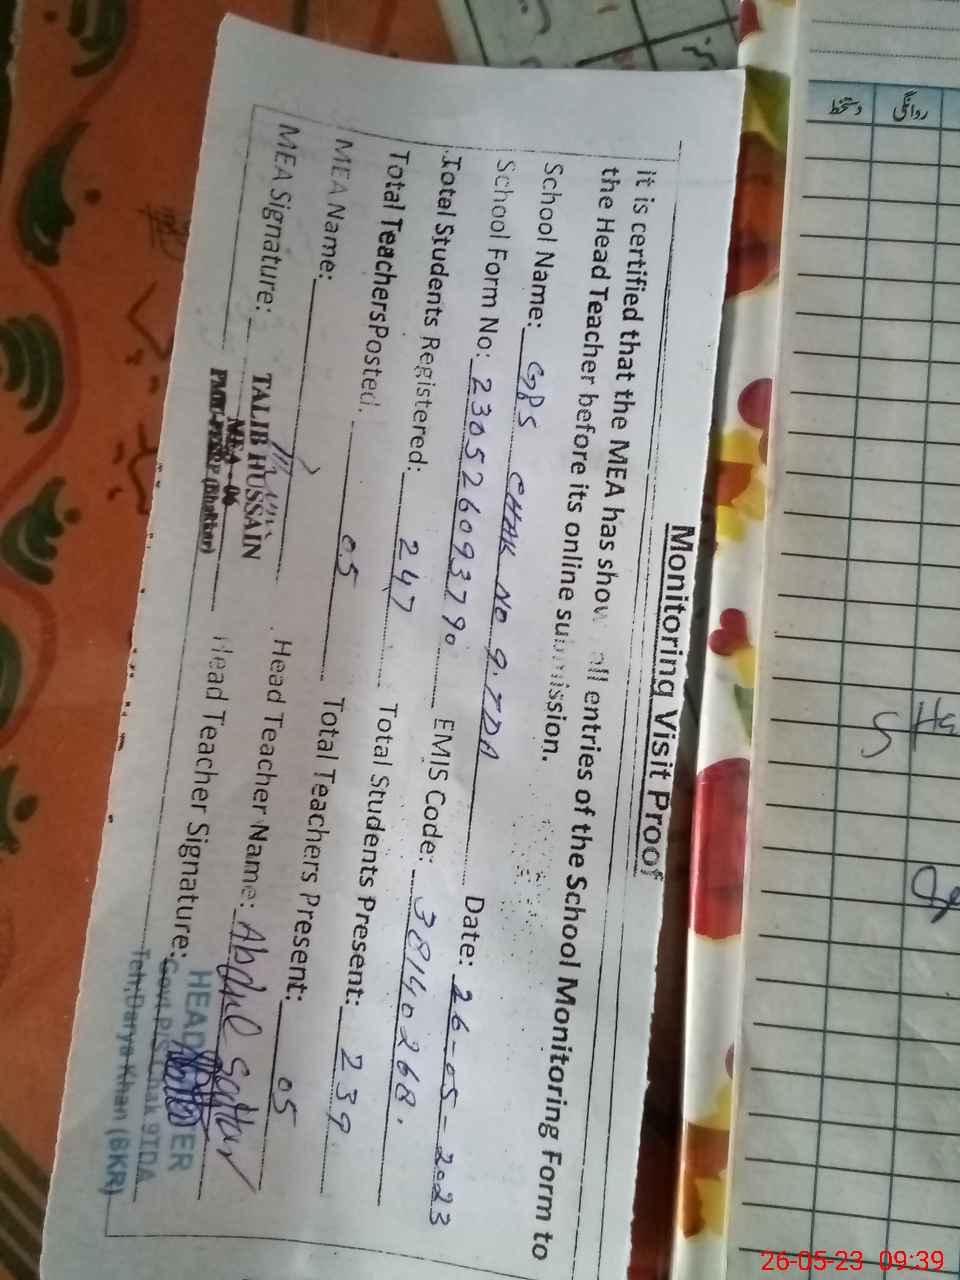 Monitoring Visit Proof
it is certified that the MEA has show all entries of the School Monitoring Form to
the Head Teacher before its online submission.
School Name: GPS CHAK NO 9.TDA Date: 26-05-2023
School Form No: 23052609 3790 EMIS Code: 38140268.
Total Students Registered: 247 Total Students Present: 239
Total TeachersPosted. 05 Total Teachers Present: 05
MEA Name: Head Teacher Name: Abdul Sattar
MEA Signature: Head Teacher Signature:
TALIB HUSSAIN
MEA - 06
(Bhakkar)
HEAD ER
Govt. P/S Chak 9TDA
Teh;Darya Khan (BKR)
26-05-23 09:39